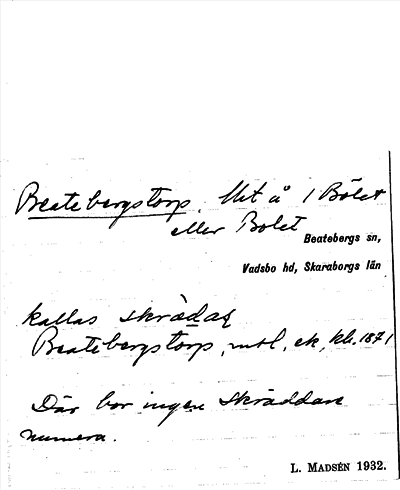 Beatebergstorp. Utt å 1 Bölet
eller Bolet
Beatebergs sn,
Vadsbo hd, Skaraborgs län
kallas skrädar
Beatebergstorp, mtl, ek, kb. 1871
Där bor ingen skräddare
numera.
L. MADSÉN 1932.